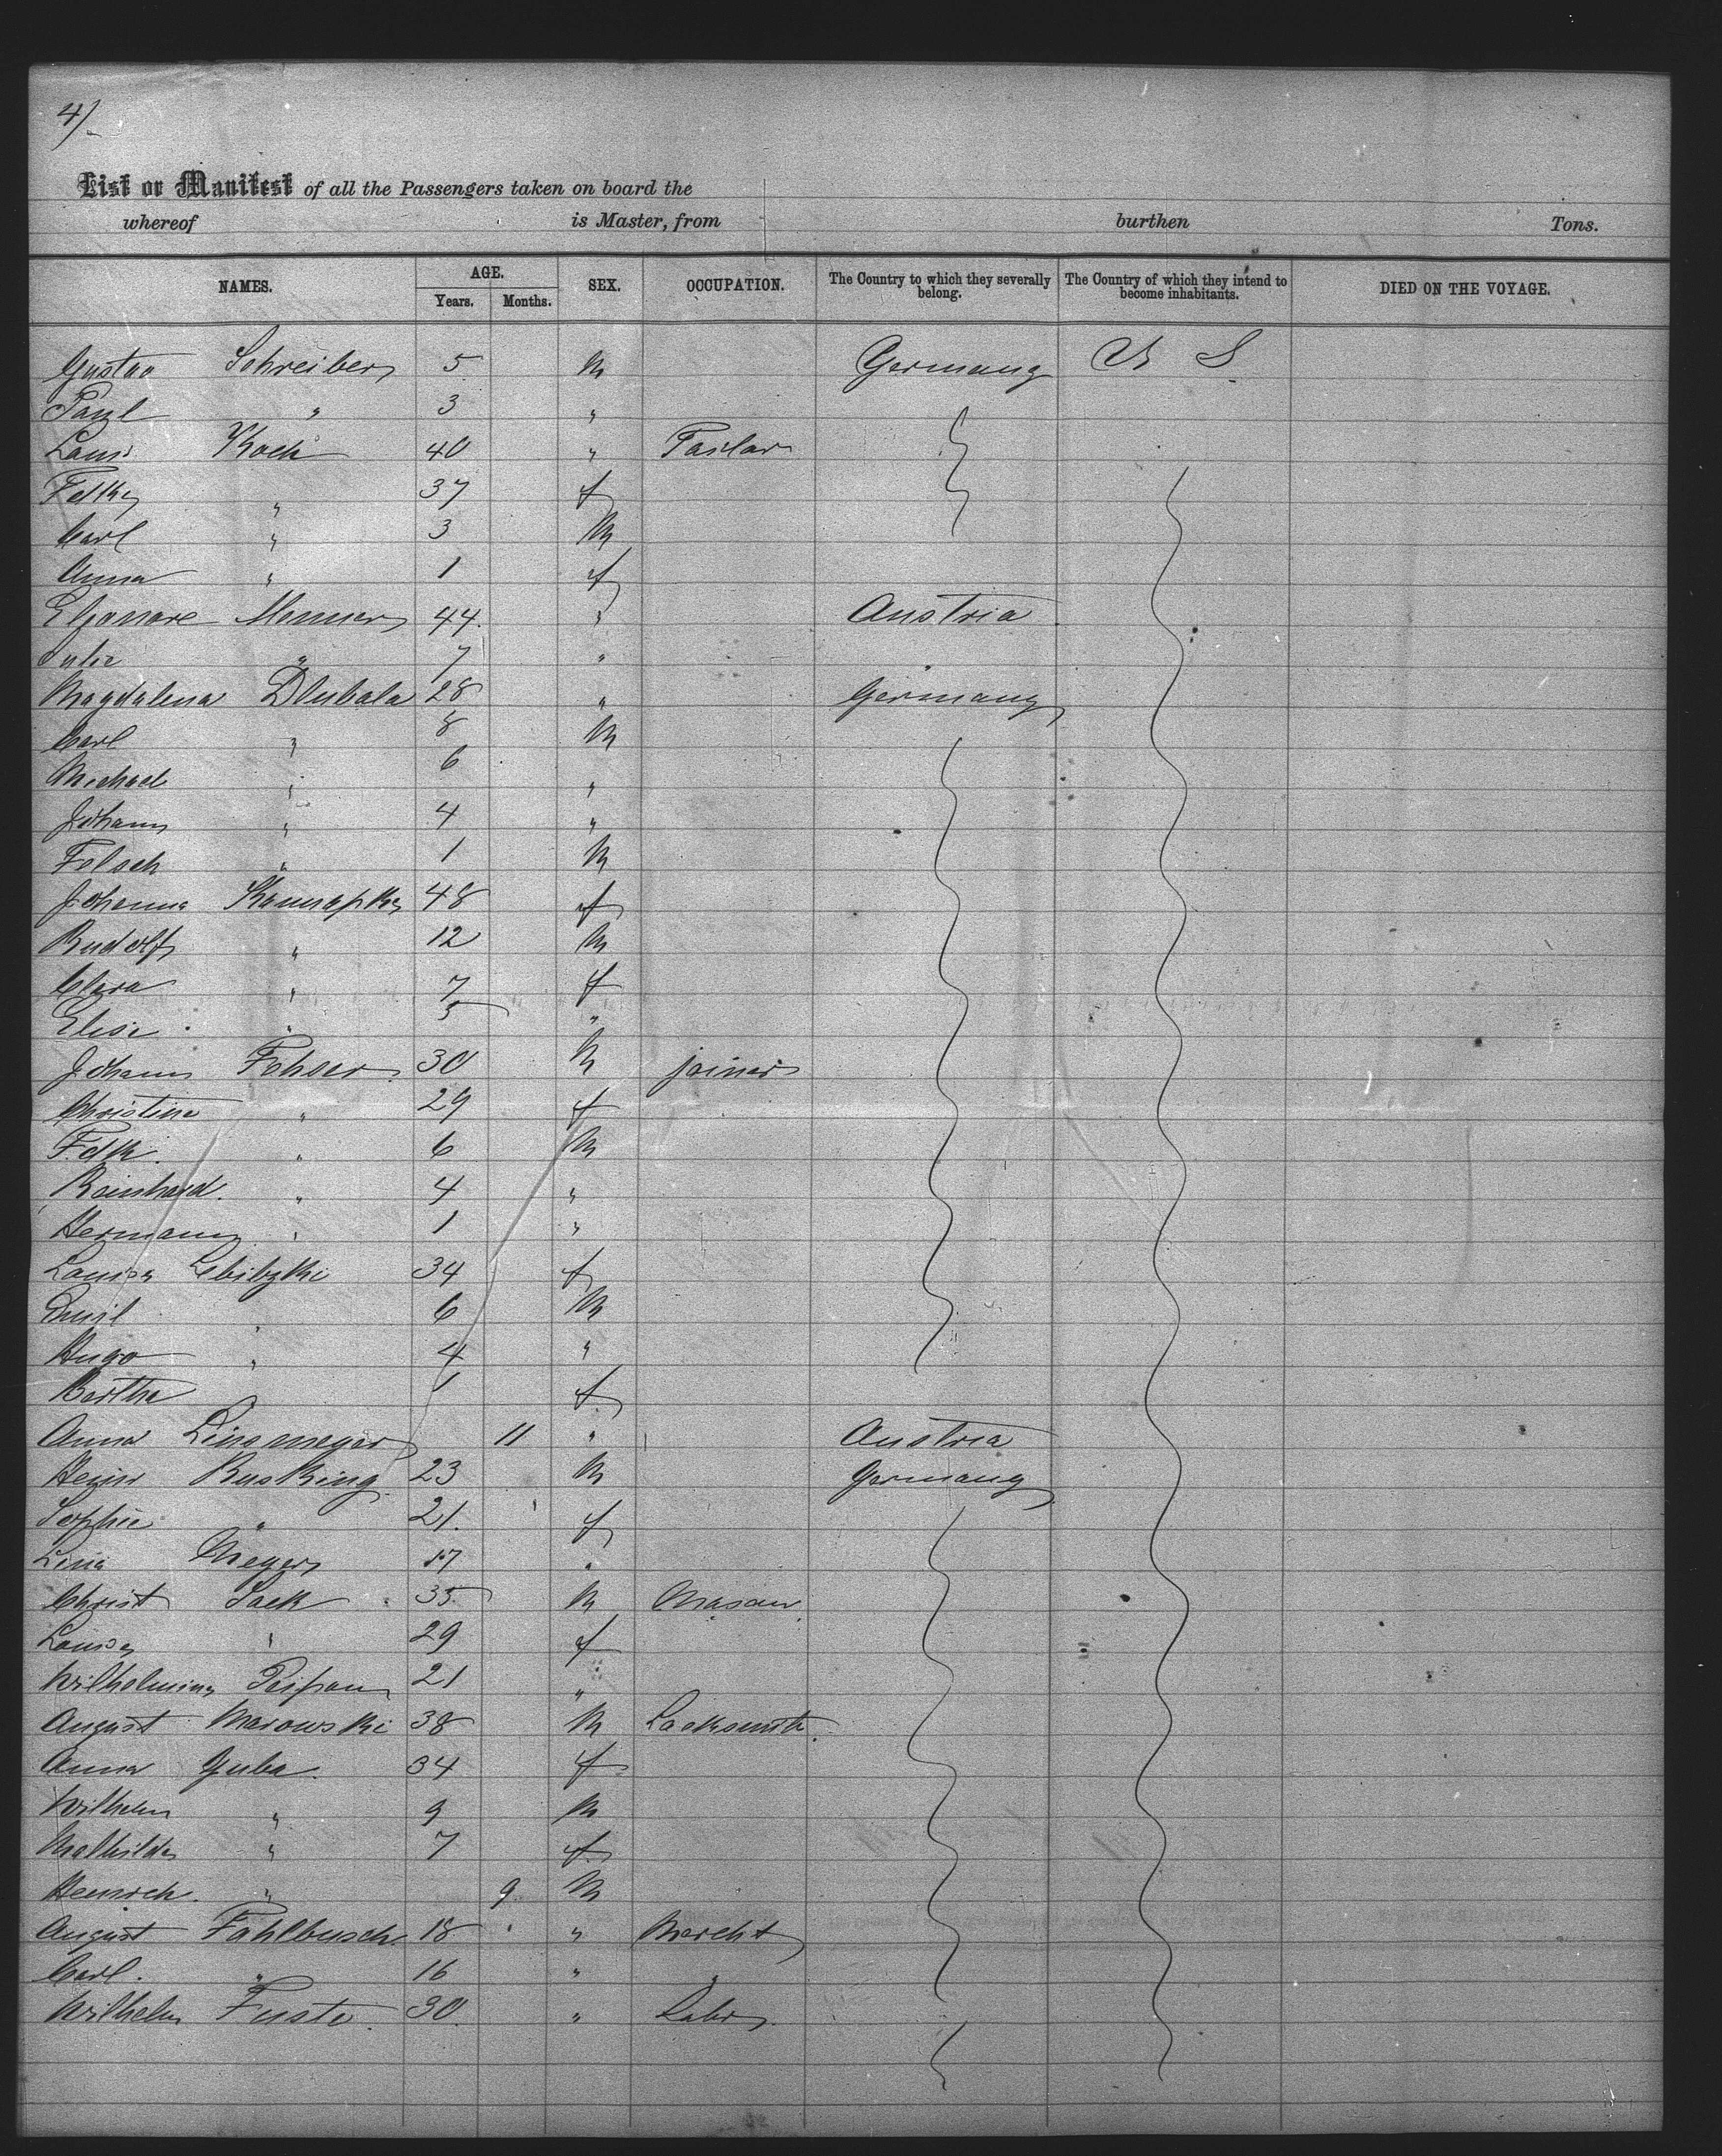 4/
List or Manifest of all the Passengers taken on board the
whereof is Master, from burthen Tons.
NAMES. AGE. Years. Months. SEX. OCCUPATION. The Country to which they severally belong. The Country of which they intend to become inhabitants. DIED ON THE VOYAGE.
Gustav Schreiber 5 M Germany U S
Paul " 3 "
Louis Koch 40 " Tailor
" 37 f
Carl " 3 M
Anna " 1 f
Eleonore 44. " Austria
Julie " 7 "
Magdalena Dlubala 28 " Germany
Carl " 8 M
Michael " 6 "
Johann " 4 "
" 1 M
Johanna 48 f
Rudolf " 12 M
Clara " 7 f
Elise " 5 "
Johann 30 M joiner
Christine " 29 f
Fdk. " 6 M
Reinhard. " 4 "
Hermann " 1 "
Louise 34 f
Emil " 6 M
Hugo " 4 "
Bertha " 1 f.
Anna Linsmeyer 11 " Austria
Heinr Rusking 23 M Germany
Sophie " 21. f
Lina Meyer 17 "
Christ Sack 35 M Mason
Louise " 29 f
Wilhelmine 21 "
August Marowski 38 M Locksmith
Anna Guba 34 f
Wilhelm " 9 M
Mathilde " 7 f
Heinrich. " 9 M
August Fahlbusch 18 " Mercht
Carl. " 16 " "
Wilhelm Fuste 30. " Labr